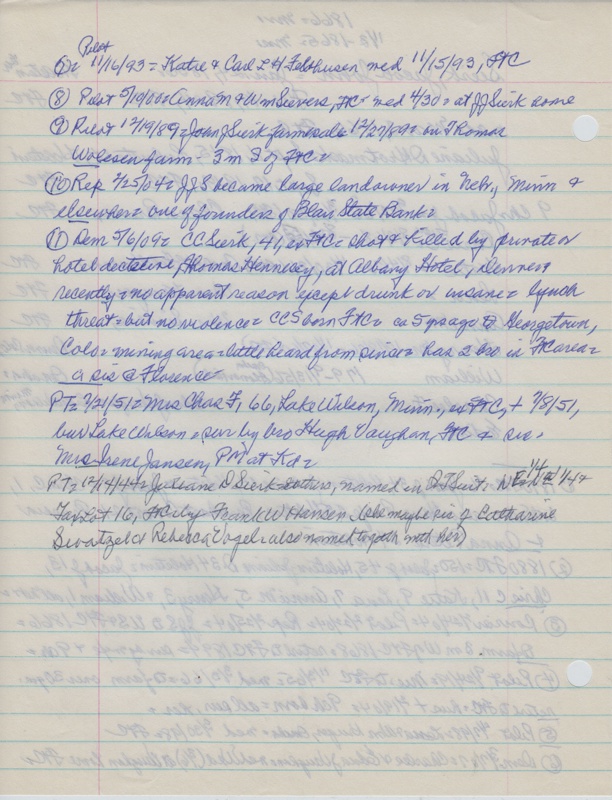 Pilot
11/16/93 = Katie & Carl L H Feldhusen med 11/15/93, FtC
(8) Pilot 5/19/00 = Anna M & Wm Sievers, FtC = med 4/30 = at JJ Sierk home
(9) Pilot 12/19/89 = John J Sierk farm sale 12/27/89 = on Thomas
Wolesen farm - 3 m S of FtC =
(10) Rep 2/25/04 = JJS became large landowner in Nebr, Minn &
elsewhere = one of founders of Blair State Bank =
(11) Dem 5/6/09 = CC Sierk, 41, ex FtC = shot & killed by private or
hotel detective, Thomas Hennecy, at Albany Hotel, Denver
recently = no apparent reason except drunk or insane = lynch
threat = but no violence = CCS born FtC = ca 5 ys ago @ Georgetown,
Colo = mining area = little heard from since = has 2 bro in FtC area =
a sis @ Florence =
PT = 7/21/51 = Mrs Chas F, 66, Lake Wilson, Minn., ex FtC, + 7/8/51,
bur Lake Wilson = sur by bro Hugh Vaughan, FtC & sis =
Mrs Irene Jansen, PM at Kd =
PT = 12/14/44 = Juliane D Sierk others, named in QT Suit = 1/4 &
Tax Lot 16, FtC by Frank W Hansen (cbe maybe sis of Catharine
Swatzel & Rebecca Vogel = also named togoth with her)